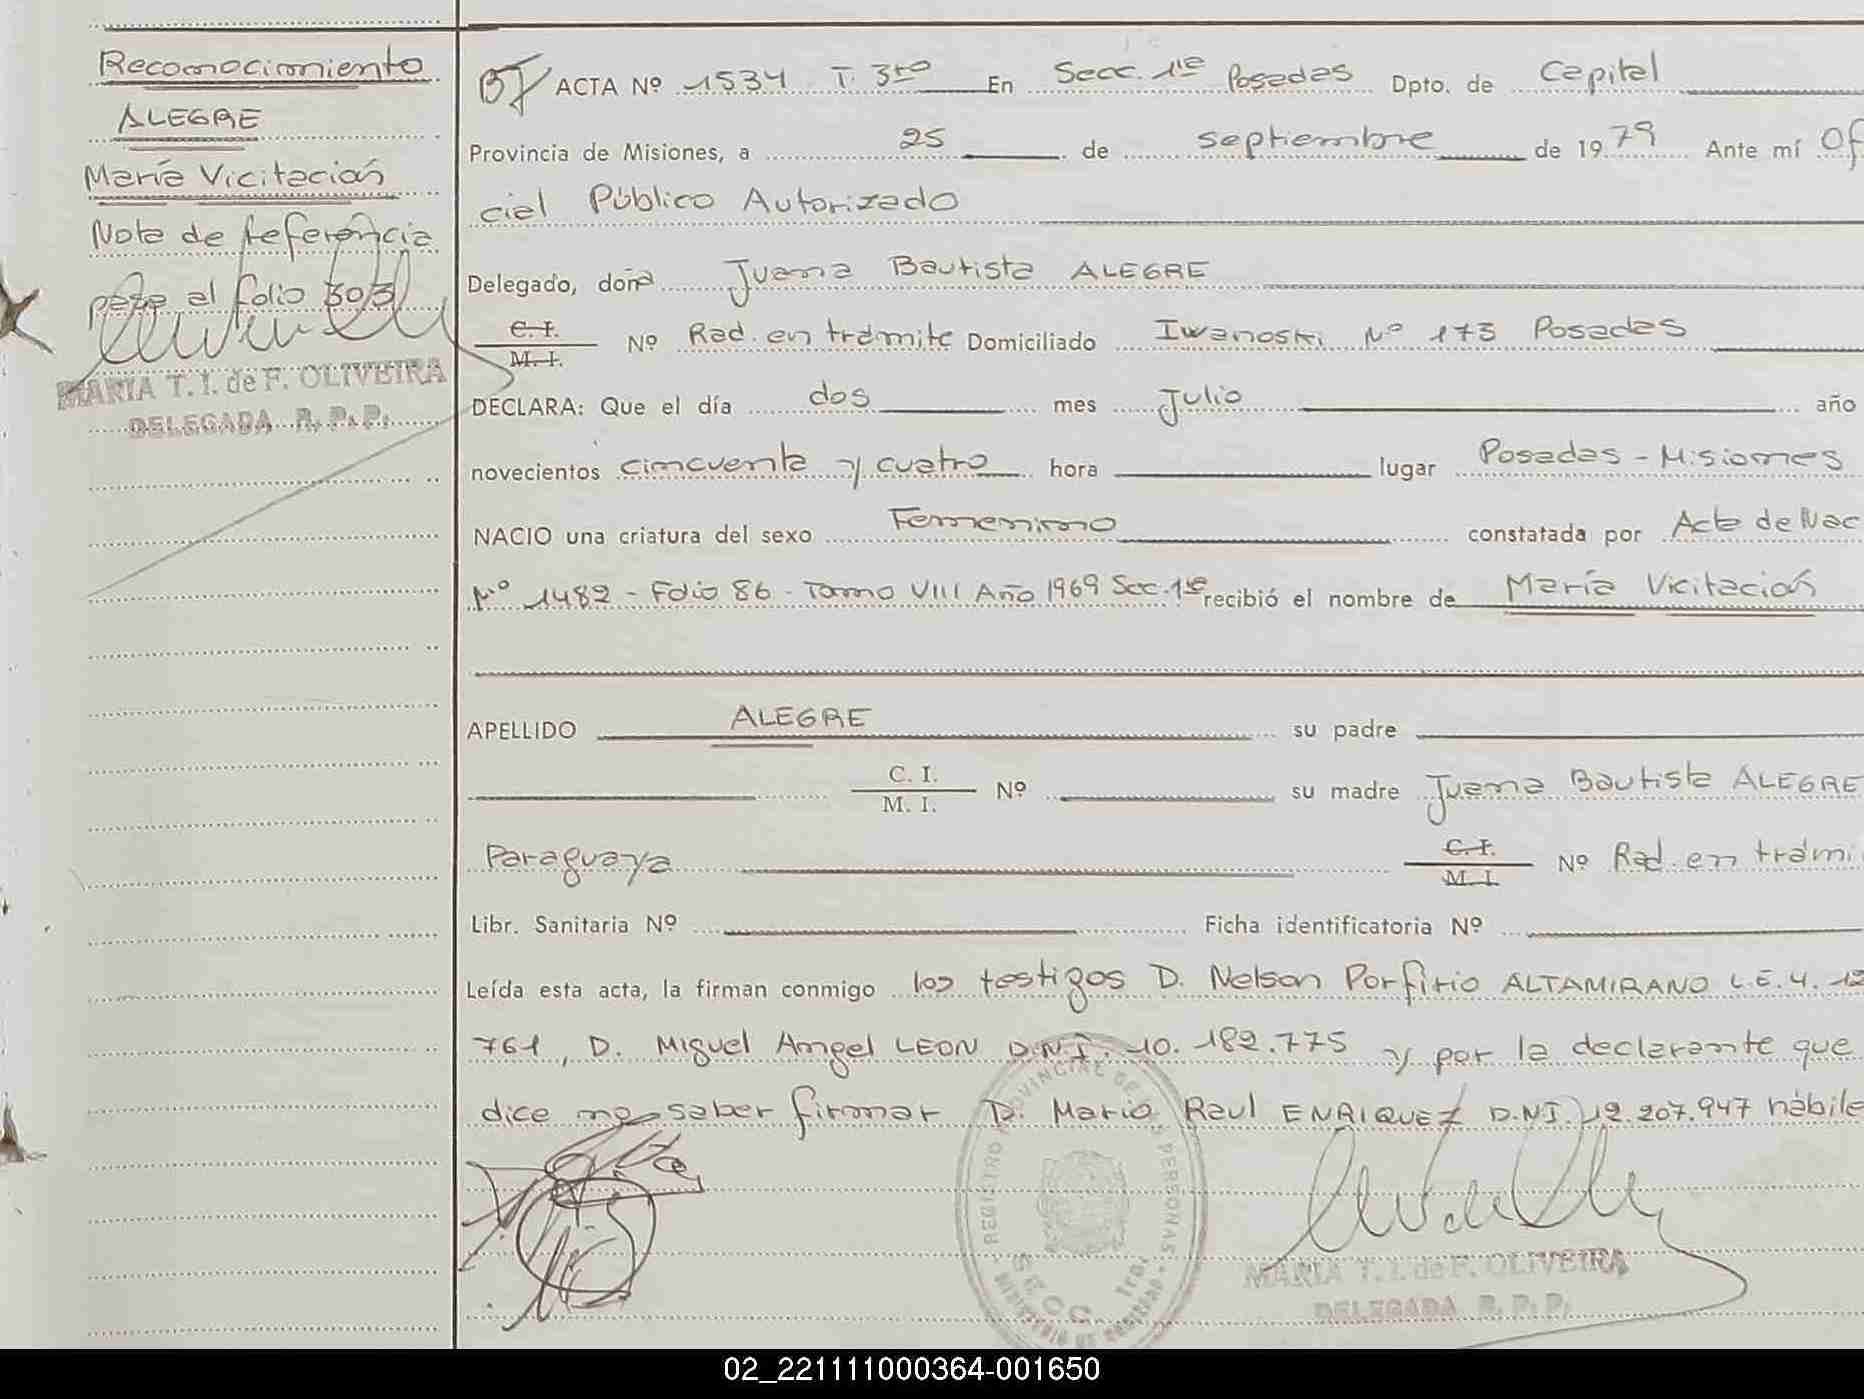 Reconocimiento
ALEGRE
María Vicitación
Nota de referencia
pasa al folio 303
MARIA T. I. de F. OLIVEIRA
DELEGADA R. P. P.
ACTA Nº 1534 T. 3ro En Secc. 1ra Posadas Dpto. de Capital
Provincia de Misiones, a 25 de septiembre de 1979 Ante mí Ofi
cial Público Autorizado
Delegado, doña Juana Bautista ALEGRE
C. I.
M. I. Nº Rad. en trámite Domiciliado Iwanoski Nº 173 Posadas
DECLARA: Que el día dos mes Julio año
novecientos cincuenta y cuatro hora lugar Posadas - Misiones
NACIO una criatura del sexo Femenino constatada por Acta de Nac
Nº 1482 - Folio 86 - Tomo VIII Año 1969 Sec. 1ra recibió el nombre de María Vicitación
APELLIDO ALEGRE su padre
C. I.
M. I. Nº su madre Juana Bautista ALEGRE
Paraguaya C. I.
M. I. Nº Rad. en trámi
Libr. Sanitaria Nº Ficha identificatoria Nº
Leída esta acta, la firman conmigo los testigos D. Nelson Porfirio ALTAMIRANO L.E. 4. 12
761, D. Miguel Angel LEON D.N.I. 10. 182.775 y por la declarante que
dice no saber firmar D. Mario Raul ENRIQUEZ D.N.I. 12.207.947 hábile
REGISTRO PROVINCIAL DE LAS PERSONAS
SECC. 1ra.
MARIA T. I. de F. OLIVEIRA
DELEGADA R. P. P.
02_221111000364-001650